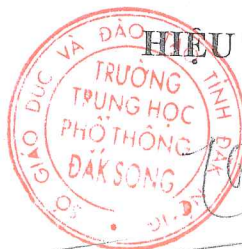 HIỆU
SỞ GIÁO DỤC VÀ ĐÀO
TỈNH ĐẮK
TRƯỜNG
TRUNG HỌC
PHỔ THÔNG
ĐĂK SONG